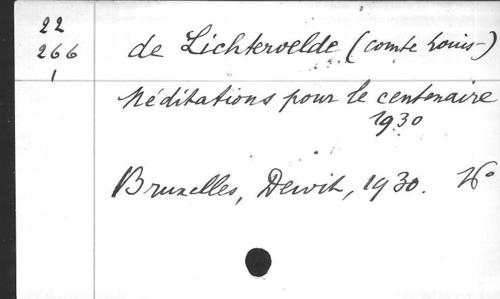 22
266
1
de Lichtervelde (comte Louis-)
Méditations pour le centenaire
1930
Bruxelles, Dewit, 1930.